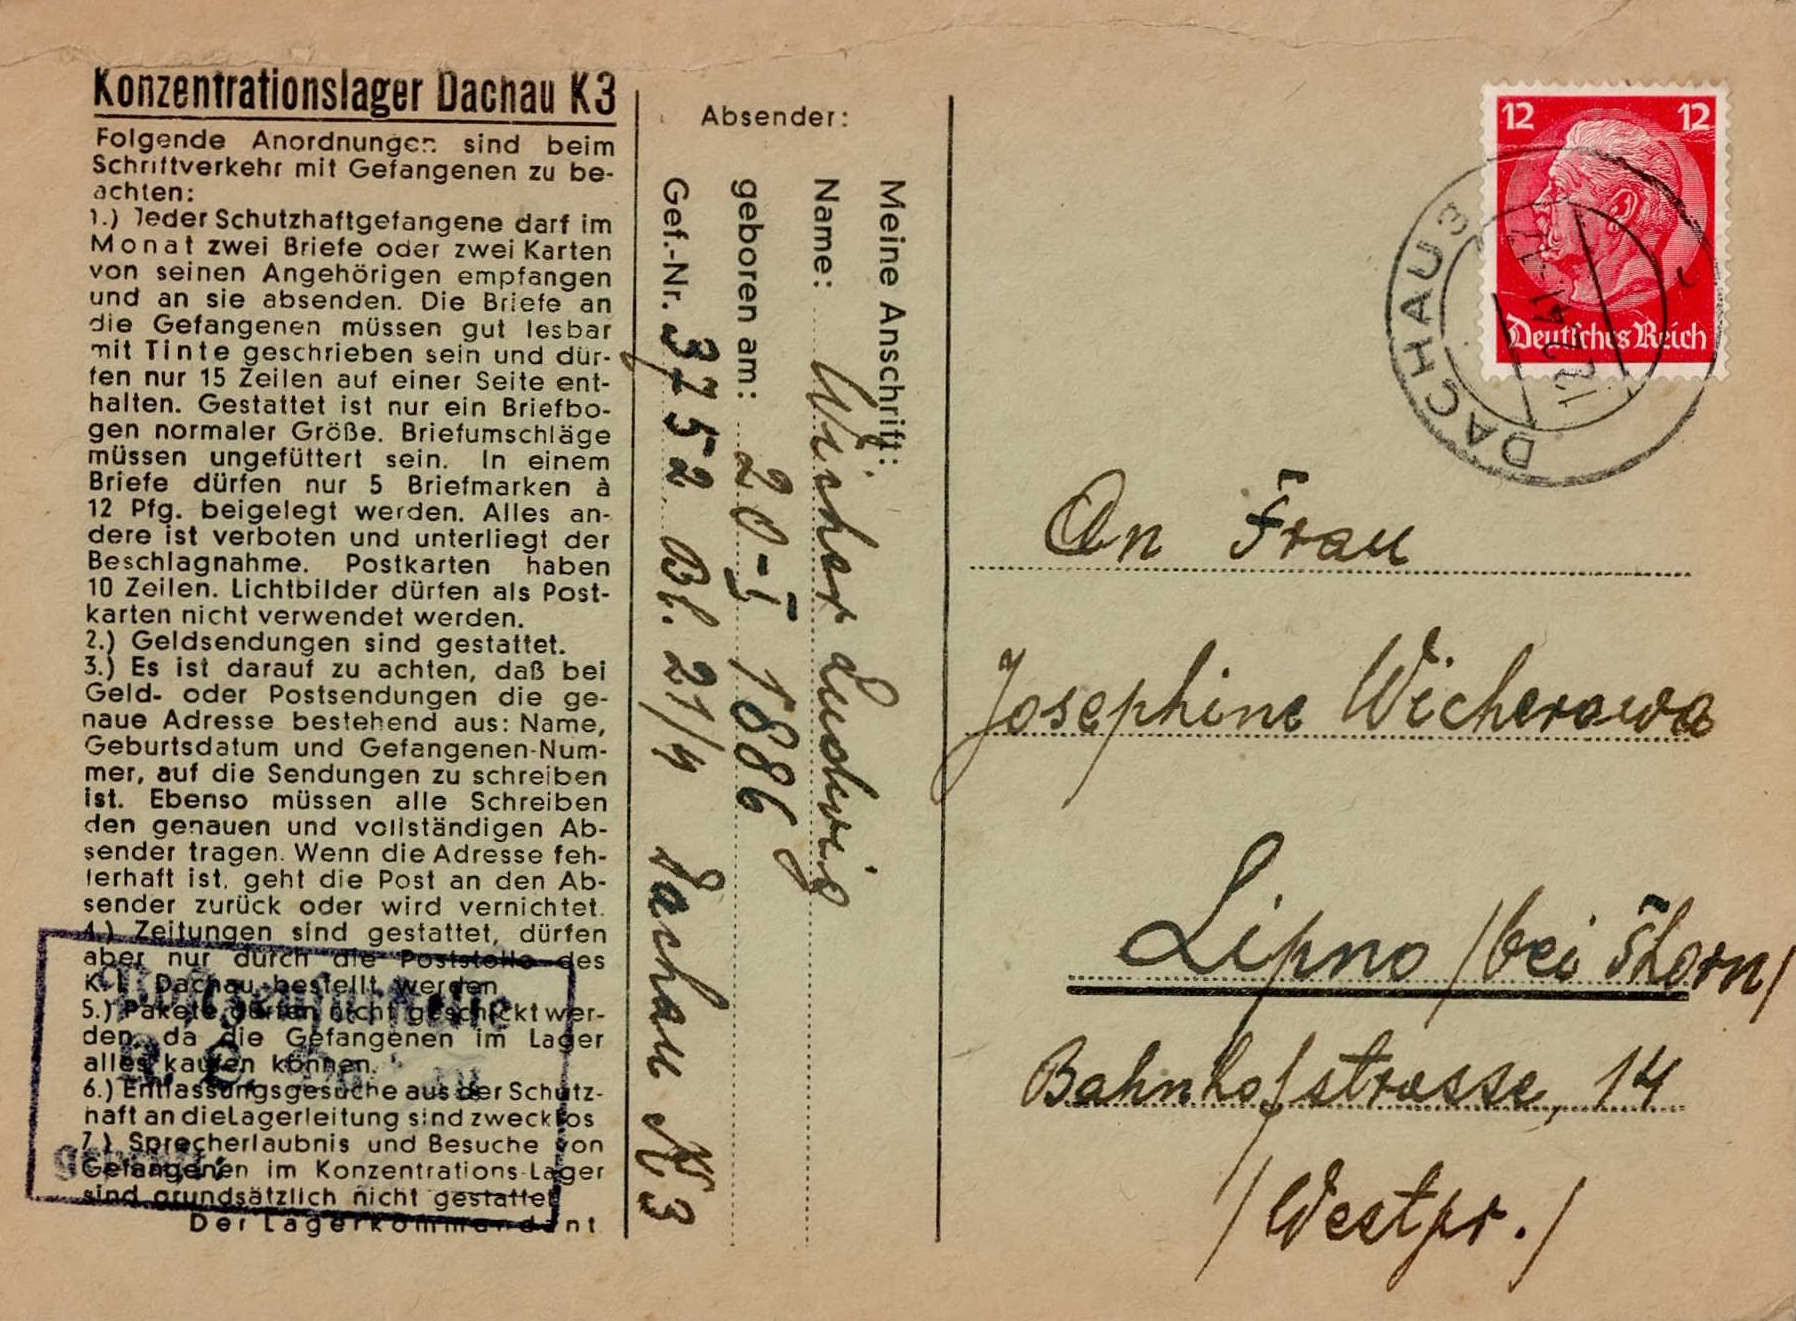 Konzentrationslager Dachau K3
Folgende Anordnungen sind beim
Schriftverkehr mit Gefangenen zu be-
achten:
1.) Jeder Schutzhaftgefangene darf im
Monat zwei Briefe oder zwei Karten
von seinen Angehörigen empfangen
und an sie absenden. Die Briefe an
die Gefangenen müssen gut lesbar
mit Tinte geschrieben sein und dür-
fen nur 15 Zeilen auf einer Seite ent-
halten. Gestattet ist nur ein Briefbo-
gen normaler Größe. Briefumschläge
müssen ungefüttert sein. In einem
Briefe dürfen nur 5 Briefmarken à
12 Pfg. beigelegt werden. Alles an-
dere ist verboten und unterliegt der
Beschlagnahme. Postkarten haben
10 Zeilen. Lichtbilder dürfen als Post-
karten nicht verwendet werden.
2.) Geldsendungen sind gestattet.
3.) Es ist darauf zu achten, daß bei
Geld- oder Postsendungen die ge-
naue Adresse bestehend aus: Name,
Geburtsdatum und Gefangenen-Num-
mer, auf die Sendungen zu schreiben
ist. Ebenso müssen alle Schreiben
den genauen und vollständigen Ab-
sender tragen. Wenn die Adresse feh-
lerhaft ist, geht die Post an den Ab-
sender zurück oder wird vernichtet.
4.) Zeitungen sind gestattet, dürfen
aber nur durch die Poststelle des
K.L. Dachau bestellt werden
5.) Pakete dürfen nicht geschickt wer-
den, da die Gefangenen im Lager
alles kaufen können.
6.) Entlassungsgesuche aus der Schutz-
haft an die Lagerleitung sind zwecklos
7.) Sprecherlaubnis und Besuche von
Gefangenen im Konzentrations-Lager
sind grundsätzlich nicht gestattet
Der Lagerkommandant
Absender:
Meine Anschrift:
Name: Wicher Ludwig
geboren am: 20-5 1886
Gef.-Nr. 3752 Bl. 21/4 Dachau K3
12 12
Deutsches Reich
DACHAU 3
An Frau
Josephine Wicherowa
Lipno /bei Thorn/
Bahnhofstrasse, 14
/Westpr./